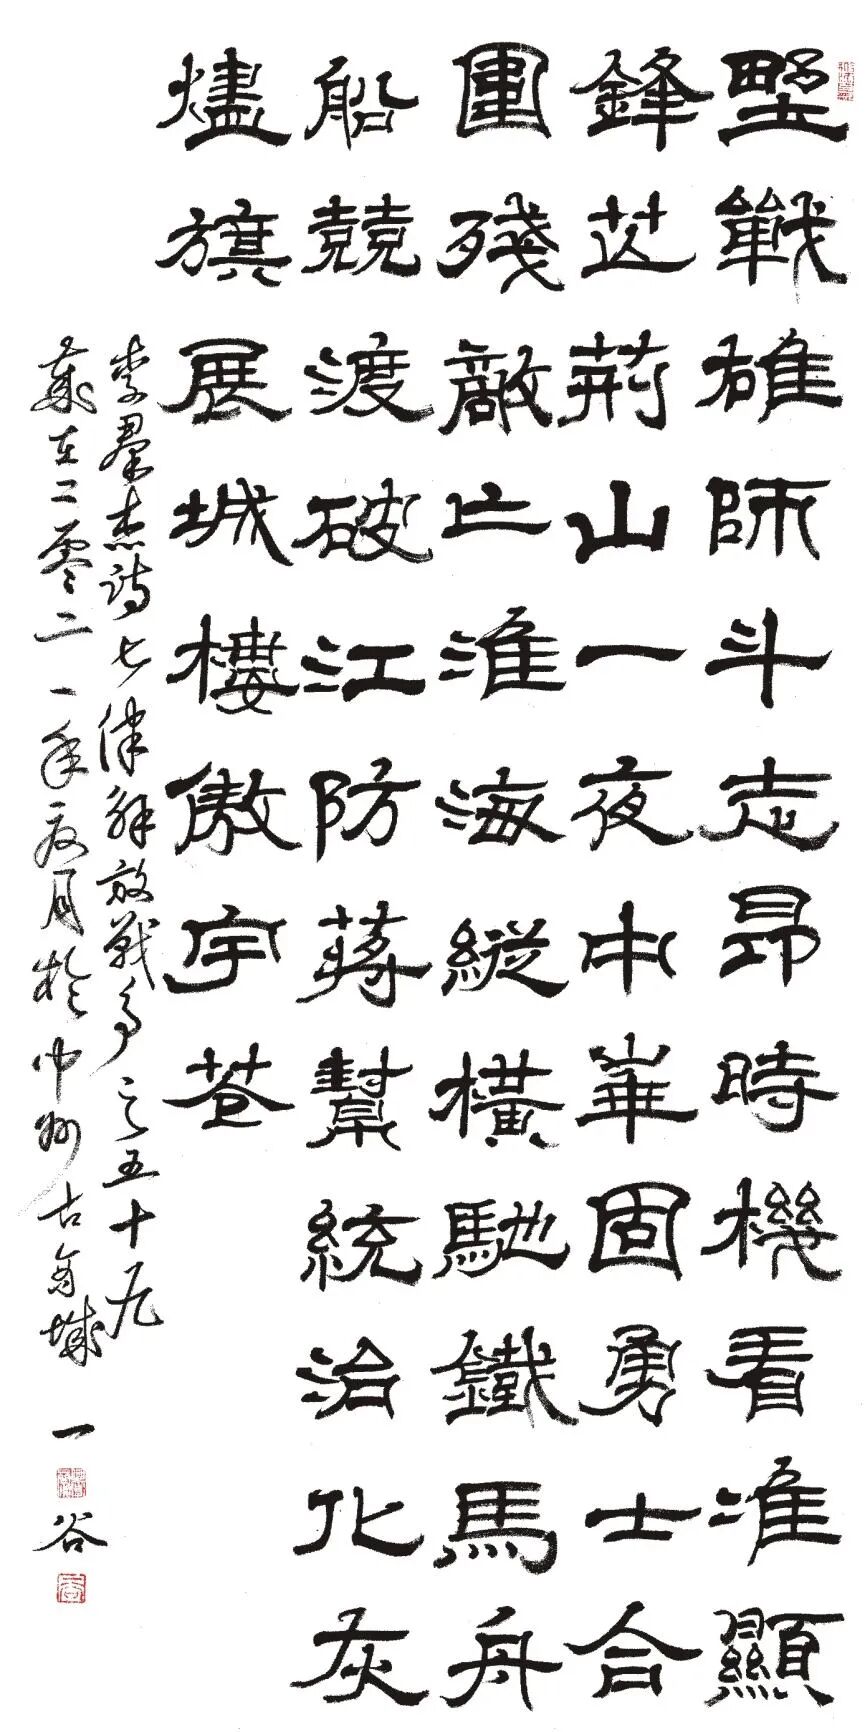 野戰雄師斗志昂時機看准顯
鋒芒荊山一夜中華固勇士合
圍殘敵亡淮海縱橫馳鐵馬舟
船競渡破江防蔣幫統治化灰
燼旗展城樓傲宇蒼
李羣杰詩七律解放戰爭之五十九
歲在二零二一年夏月於中州古商城 一谷